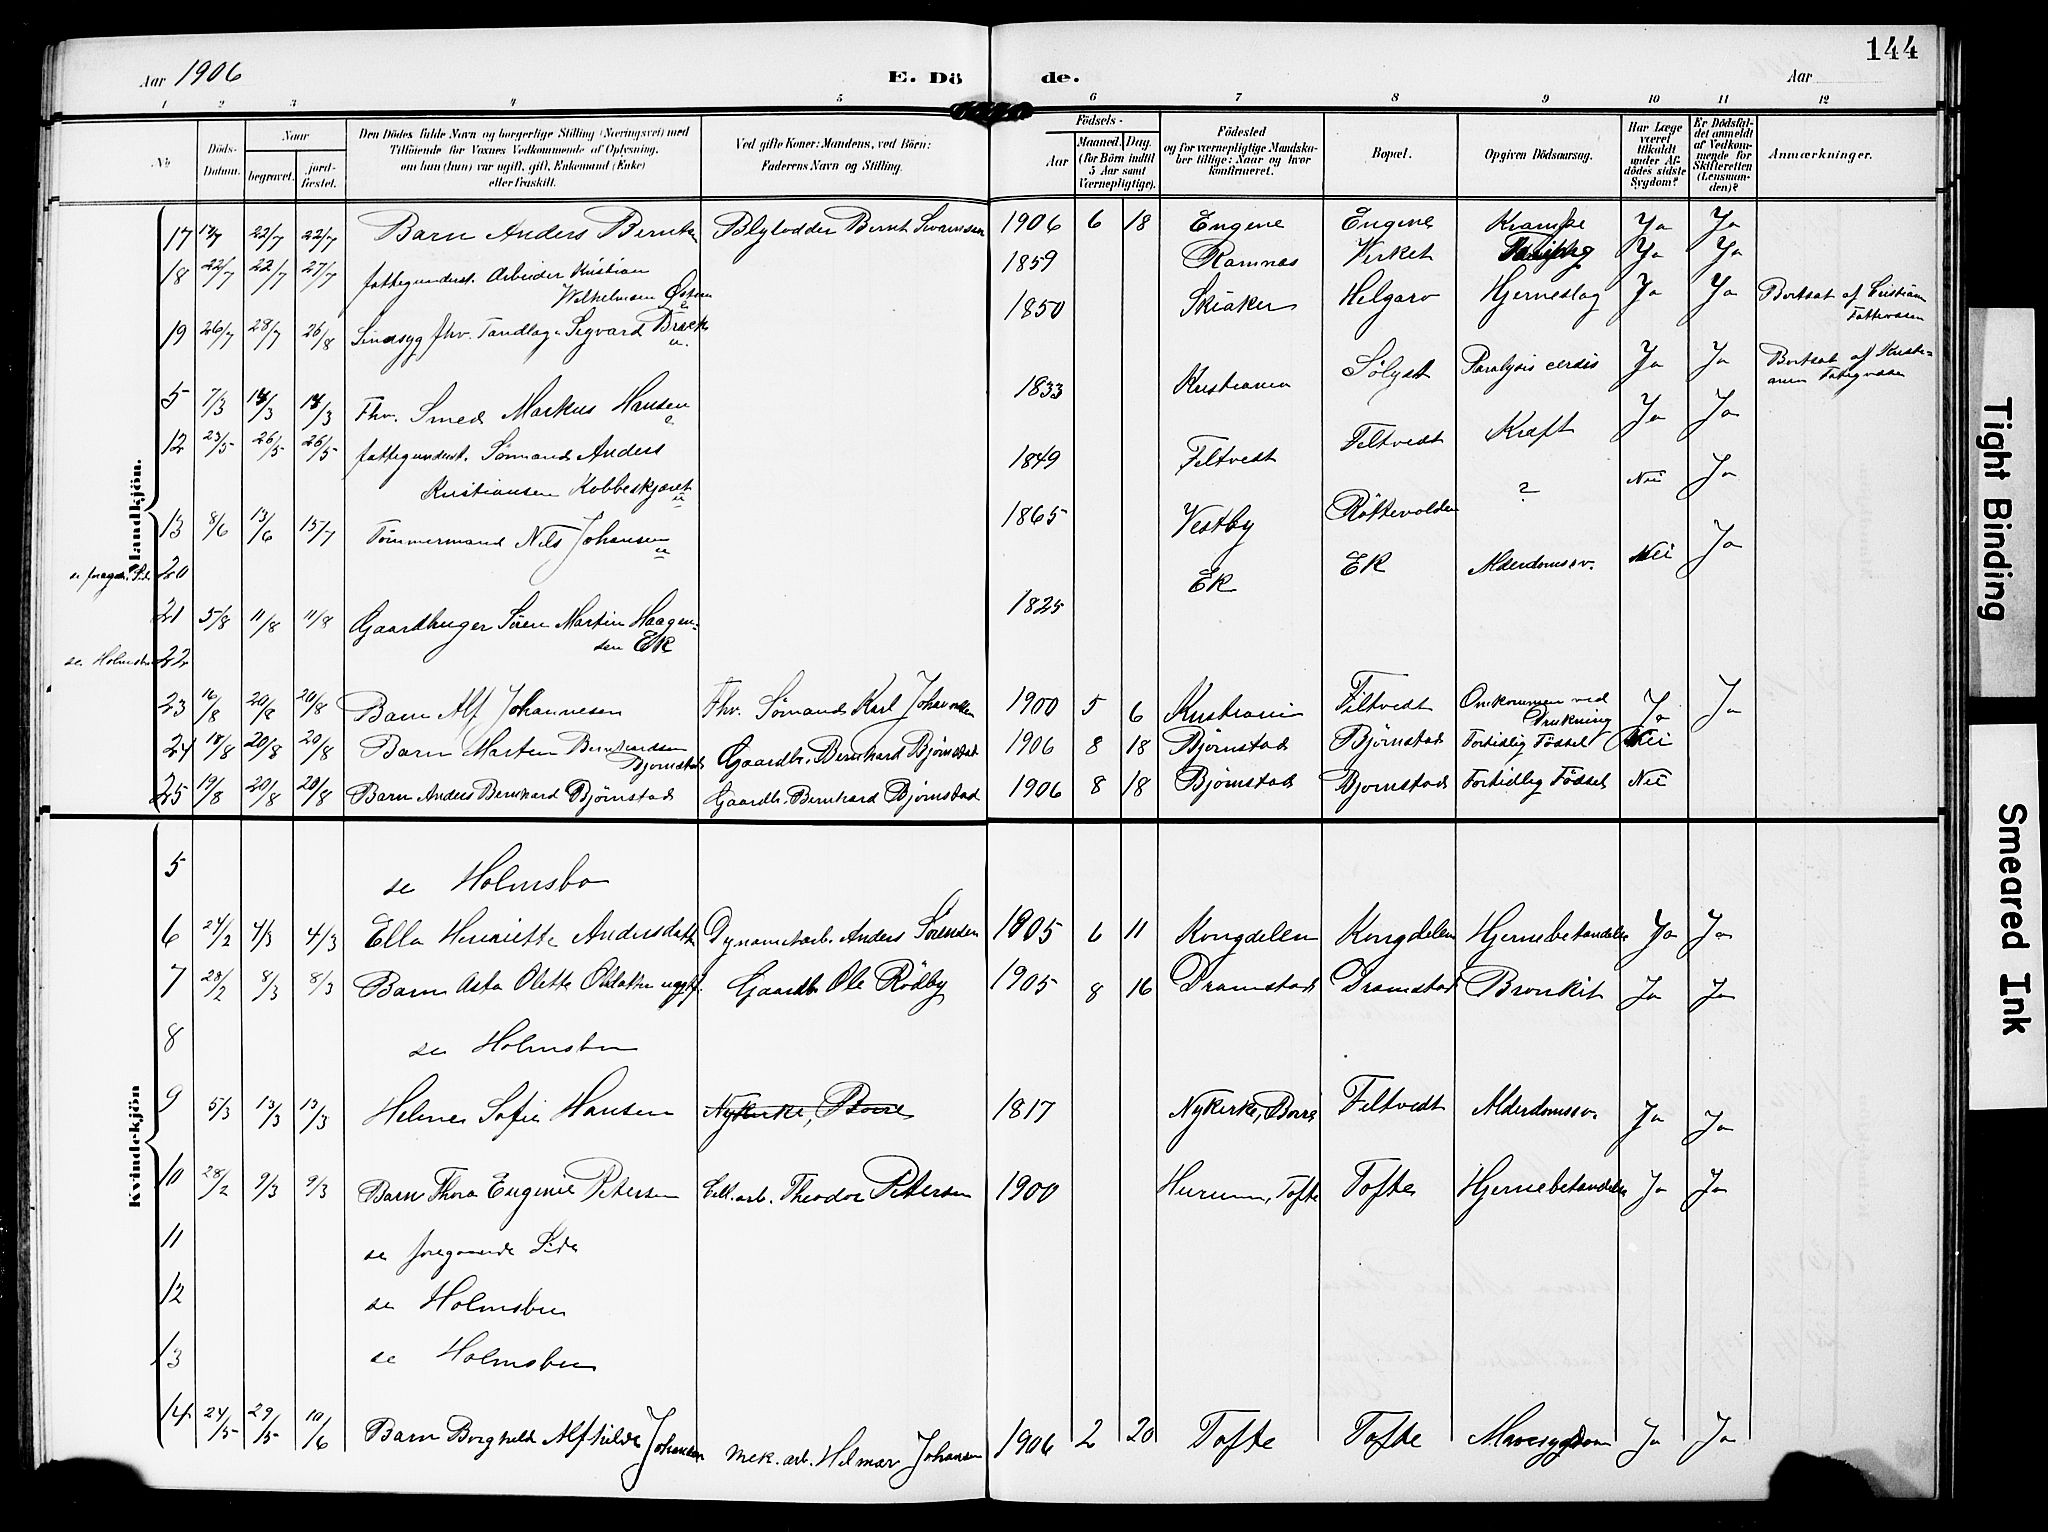 144
Aar 1906
E. Döde.
Aar
1 2 3 4 5 6 7 8 9 10 11 12
No
Döds-Datum.
Naar
begravet.
jordfæstet.
Den Dödes fulde Navn og borgerlige Stilling (Næringsvei) med Tilföiende for Voxnes Vedkommende af Oplysning, om han (hun) var ugift, gift, Enkemand (Enke) eller fraskilt.
Ved gifte Koner: Mandens, ved Börn: Faderens Navn og Stilling.
Födsels-
Aar
Maaned. Dag. (for Börn indtil 5 Aar samt Værnepligtige).
Födested og for værnepligtige Mandskaber tillige: Naar og hvor konfirmeret.
Bopæl.
Opgiven Dödsaarsag.
Har Læge været tilkaldt under Afdödes sidste Sygdom?
Er Dödsfaldet anmeldt af Vedkommende for Skifteretten (Lensmanden)?
Anmærkninger.
Mandkjön.
17 22/7 22/7 Barn Anders Berntsen 1906 6 18 Engene Engene Krampe Ja Ja
18 22/7 22/7 27/7 fattigunderst. Arbeider Kristian Wilhelmsen 1859 Ramnes Virket Ja Ja
19 26/7 28/7 26/8 Sindsyg fhv. Tandlæge Sigvard 1850 Skiaker Helgarø Hjerneslag Ja Ja Bortsat af Kristiania Fattigvæsen
5 7/3 13/3 13/3 Fhv. Smed Markus Hansen 1833 Kristiania Sølyst Paralysis cordis Ja Ja Bortsat af Kristiania Fattigvæsen
12 23/5 26/5 26/5 fattigunderst. Sømand Anders Kristiansen Kobbeskjæret 1849 Filtvedt Filtvedt Kræft Ja Ja
13 8/6 13/6 15/7 Tømmermand Nils Johansen 1865 Vestby ? Nei Ja
se foregaa. Side 20
21 5/8 11/8 11/8 Gaardbruger Sören Martin Haagensen Ek 1825 Ek Ek Alderdomssv. Nei Ja
se Holmsbu 22
23 16/8 20/8 20/8 Barn Alf Johannesen Fhv. Sömand Karl Johannesen 1900 5 6 Kristiania Filtvedt Omkommen ved Drukning Ja Ja
24 18/8 20/8 20/8 Barn Marten Bernhardsen Bjørnstad Gaardb. Bernhard Bjørnstad 1906 8 18 Bjørnstad Bjørnstad Fortidlig Fødsel Nei
25 19/8 20/8 20/8 Barn Anders Bernhard Bjørnstad Gaardb. Bernhard Bjørnstad 1906 8 18 Bjørnstad Bjørnstad Fortidlig Fødsel Nei
Kvindekjön
5 se Holmsbo
6 24/2 4/3 4/3 Ella Henriette Andersdatter Dynamitarb. Anders Sörensen 1905 6 11 Kongdelen Kongdelen Hjernebetændelse Ja Ja
7 28/2 8/3 8/3 Barn Asta Olette Olsdatter Gaardb. Ole Rödby 1905 8 16 Dramstad Dramstad Bronkit Ja Ja
8 se Holmsbu
9 5/3 13/3 13/3 Helene Sofie Hansen Nykirke, Borre 1817 Nykirke, Borre Filtvedt Alderdomssv. Ja Ja
10 28/2 9/3 9/3 Barn Thora Eugenie Petersen Cell.arb. Theodor Petersen 1900 Hurum, Tofte Tofte Hjernebetændelse Ja Ja
11 se foregaaende Side
12 se Holmsbu
13 se Holmsbu
14 24/5 29/5 10/6 Barn Borghild Alfhilde Johansen Mek. arb. Hilmar Johansen 1906 2 20 Tofte Tofte Mavesygdom Ja Ja
Tight Binding
Smeared Ink